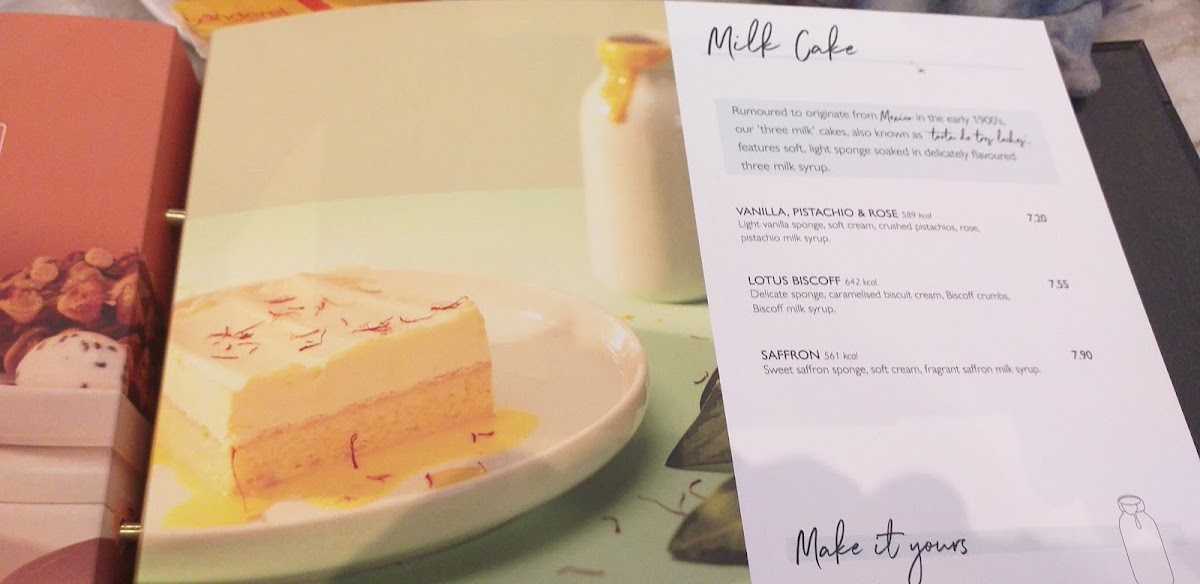 Läderol
Milk Cake
Rumoured to originate from Mexico in the early 1900's,
our 'three milk' cakes, also known as 'torta de tres leches',
features soft, light sponge soaked in delicately flavoured
three milk syrup.
VANILLA, PISTACHIO & ROSE 589 kcal 7.20
Light vanilla sponge, soft cream, crushed pistachios, rose,
pistachio milk syrup.
LOTUS BISCOFF 642 kcal 7.55
Delicate sponge, caramelised biscuit cream, Biscoff crumbs,
Biscoff milk syrup.
SAFFRON 561 kcal 7.90
Sweet saffron sponge, soft cream, fragrant saffron milk syrup.
Make it yours